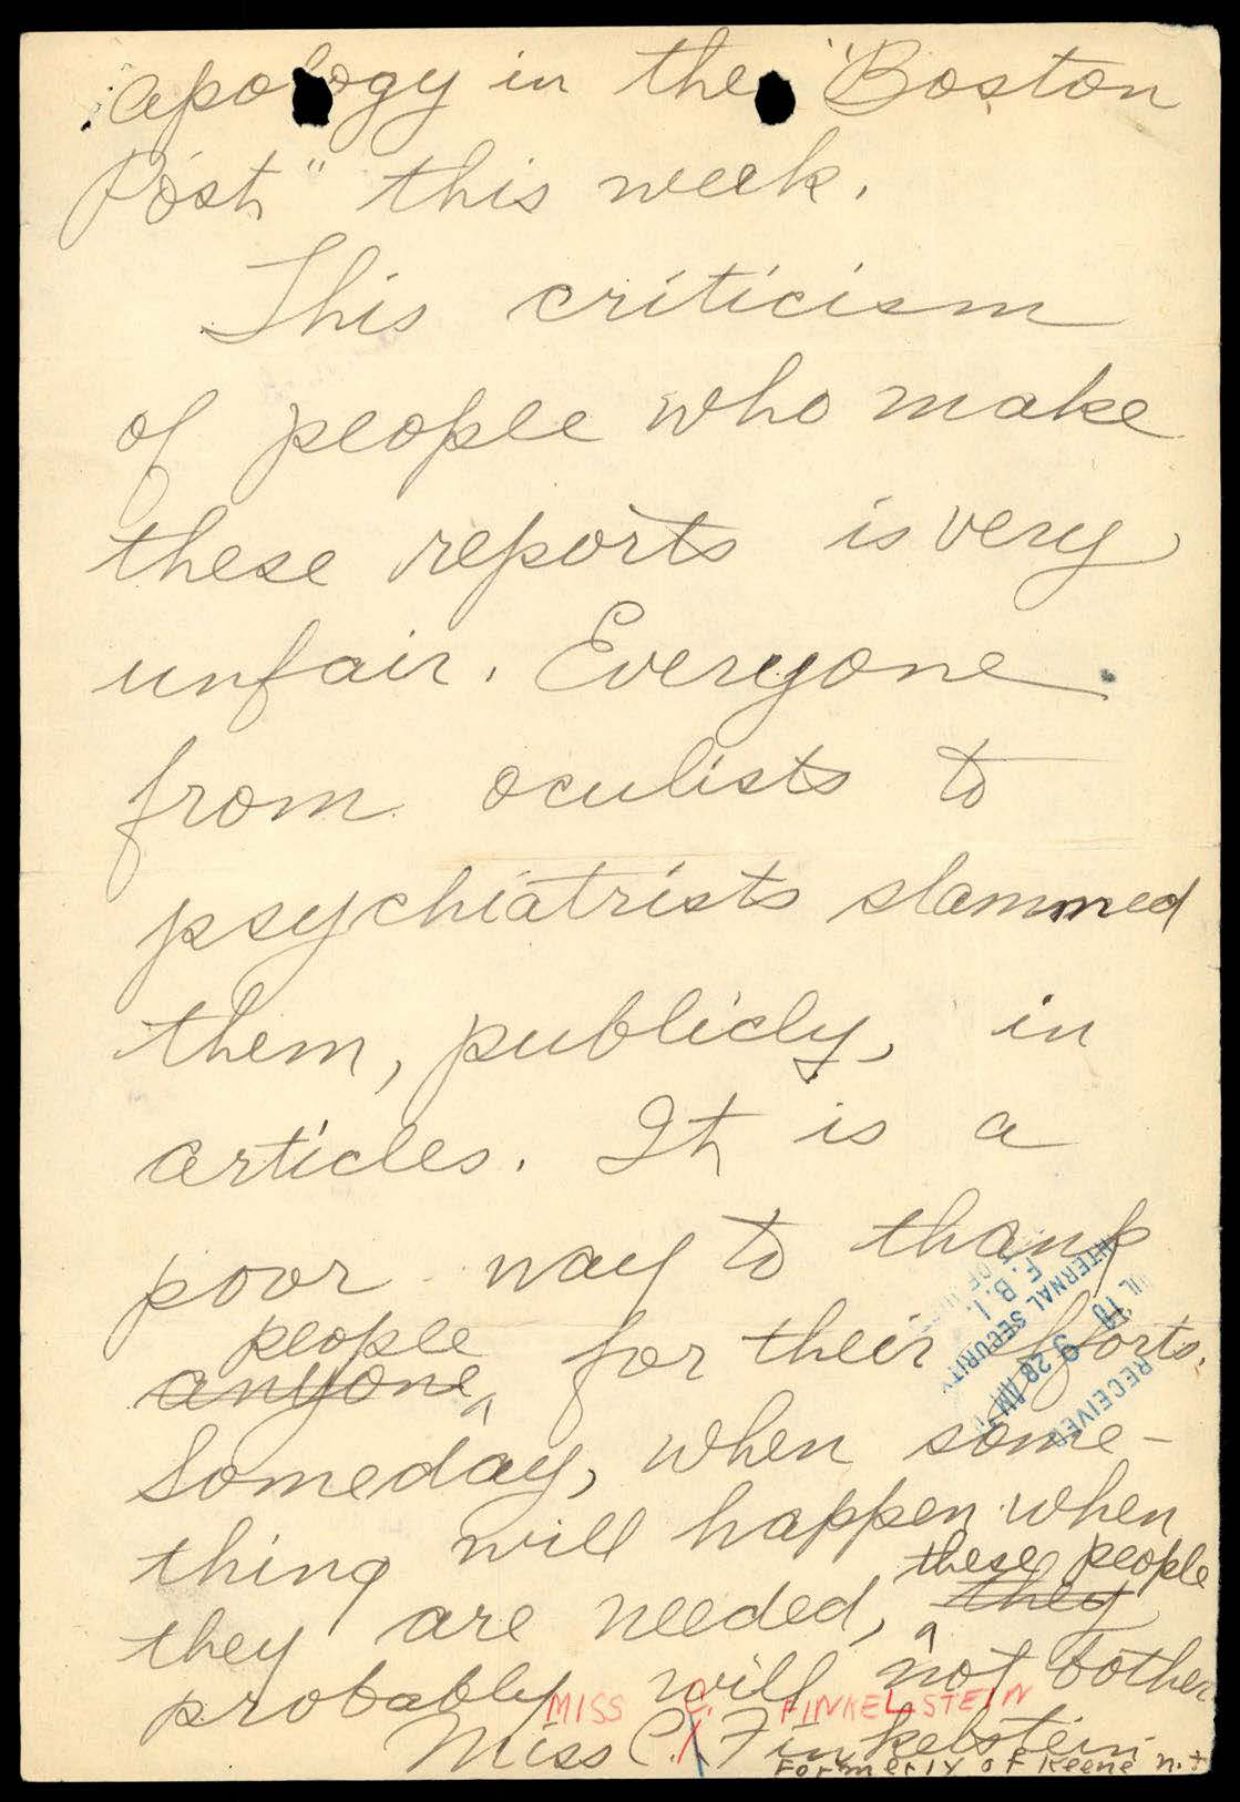 apology in the "Boston
Post" this week.
This criticism
of people who make
these reports is very
unfair. Everyone
from oculists to
psychiatrists slammed
them, publicly, in
articles. It is a
poor way to thank
people
anyone for their efforts.
Someday, when some-
thing will happen when
these people
they are needed, they
probably will not bother
MISS C. FINKELSTEIN
Miss C. Finkelstein
Formerly of Keene N.H
RECEIVED
9 28 AM
INTERNAL SECURITY
F. B. I.